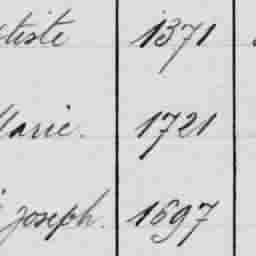 tiste 1371
Marie. 1721
Joseph. 1697